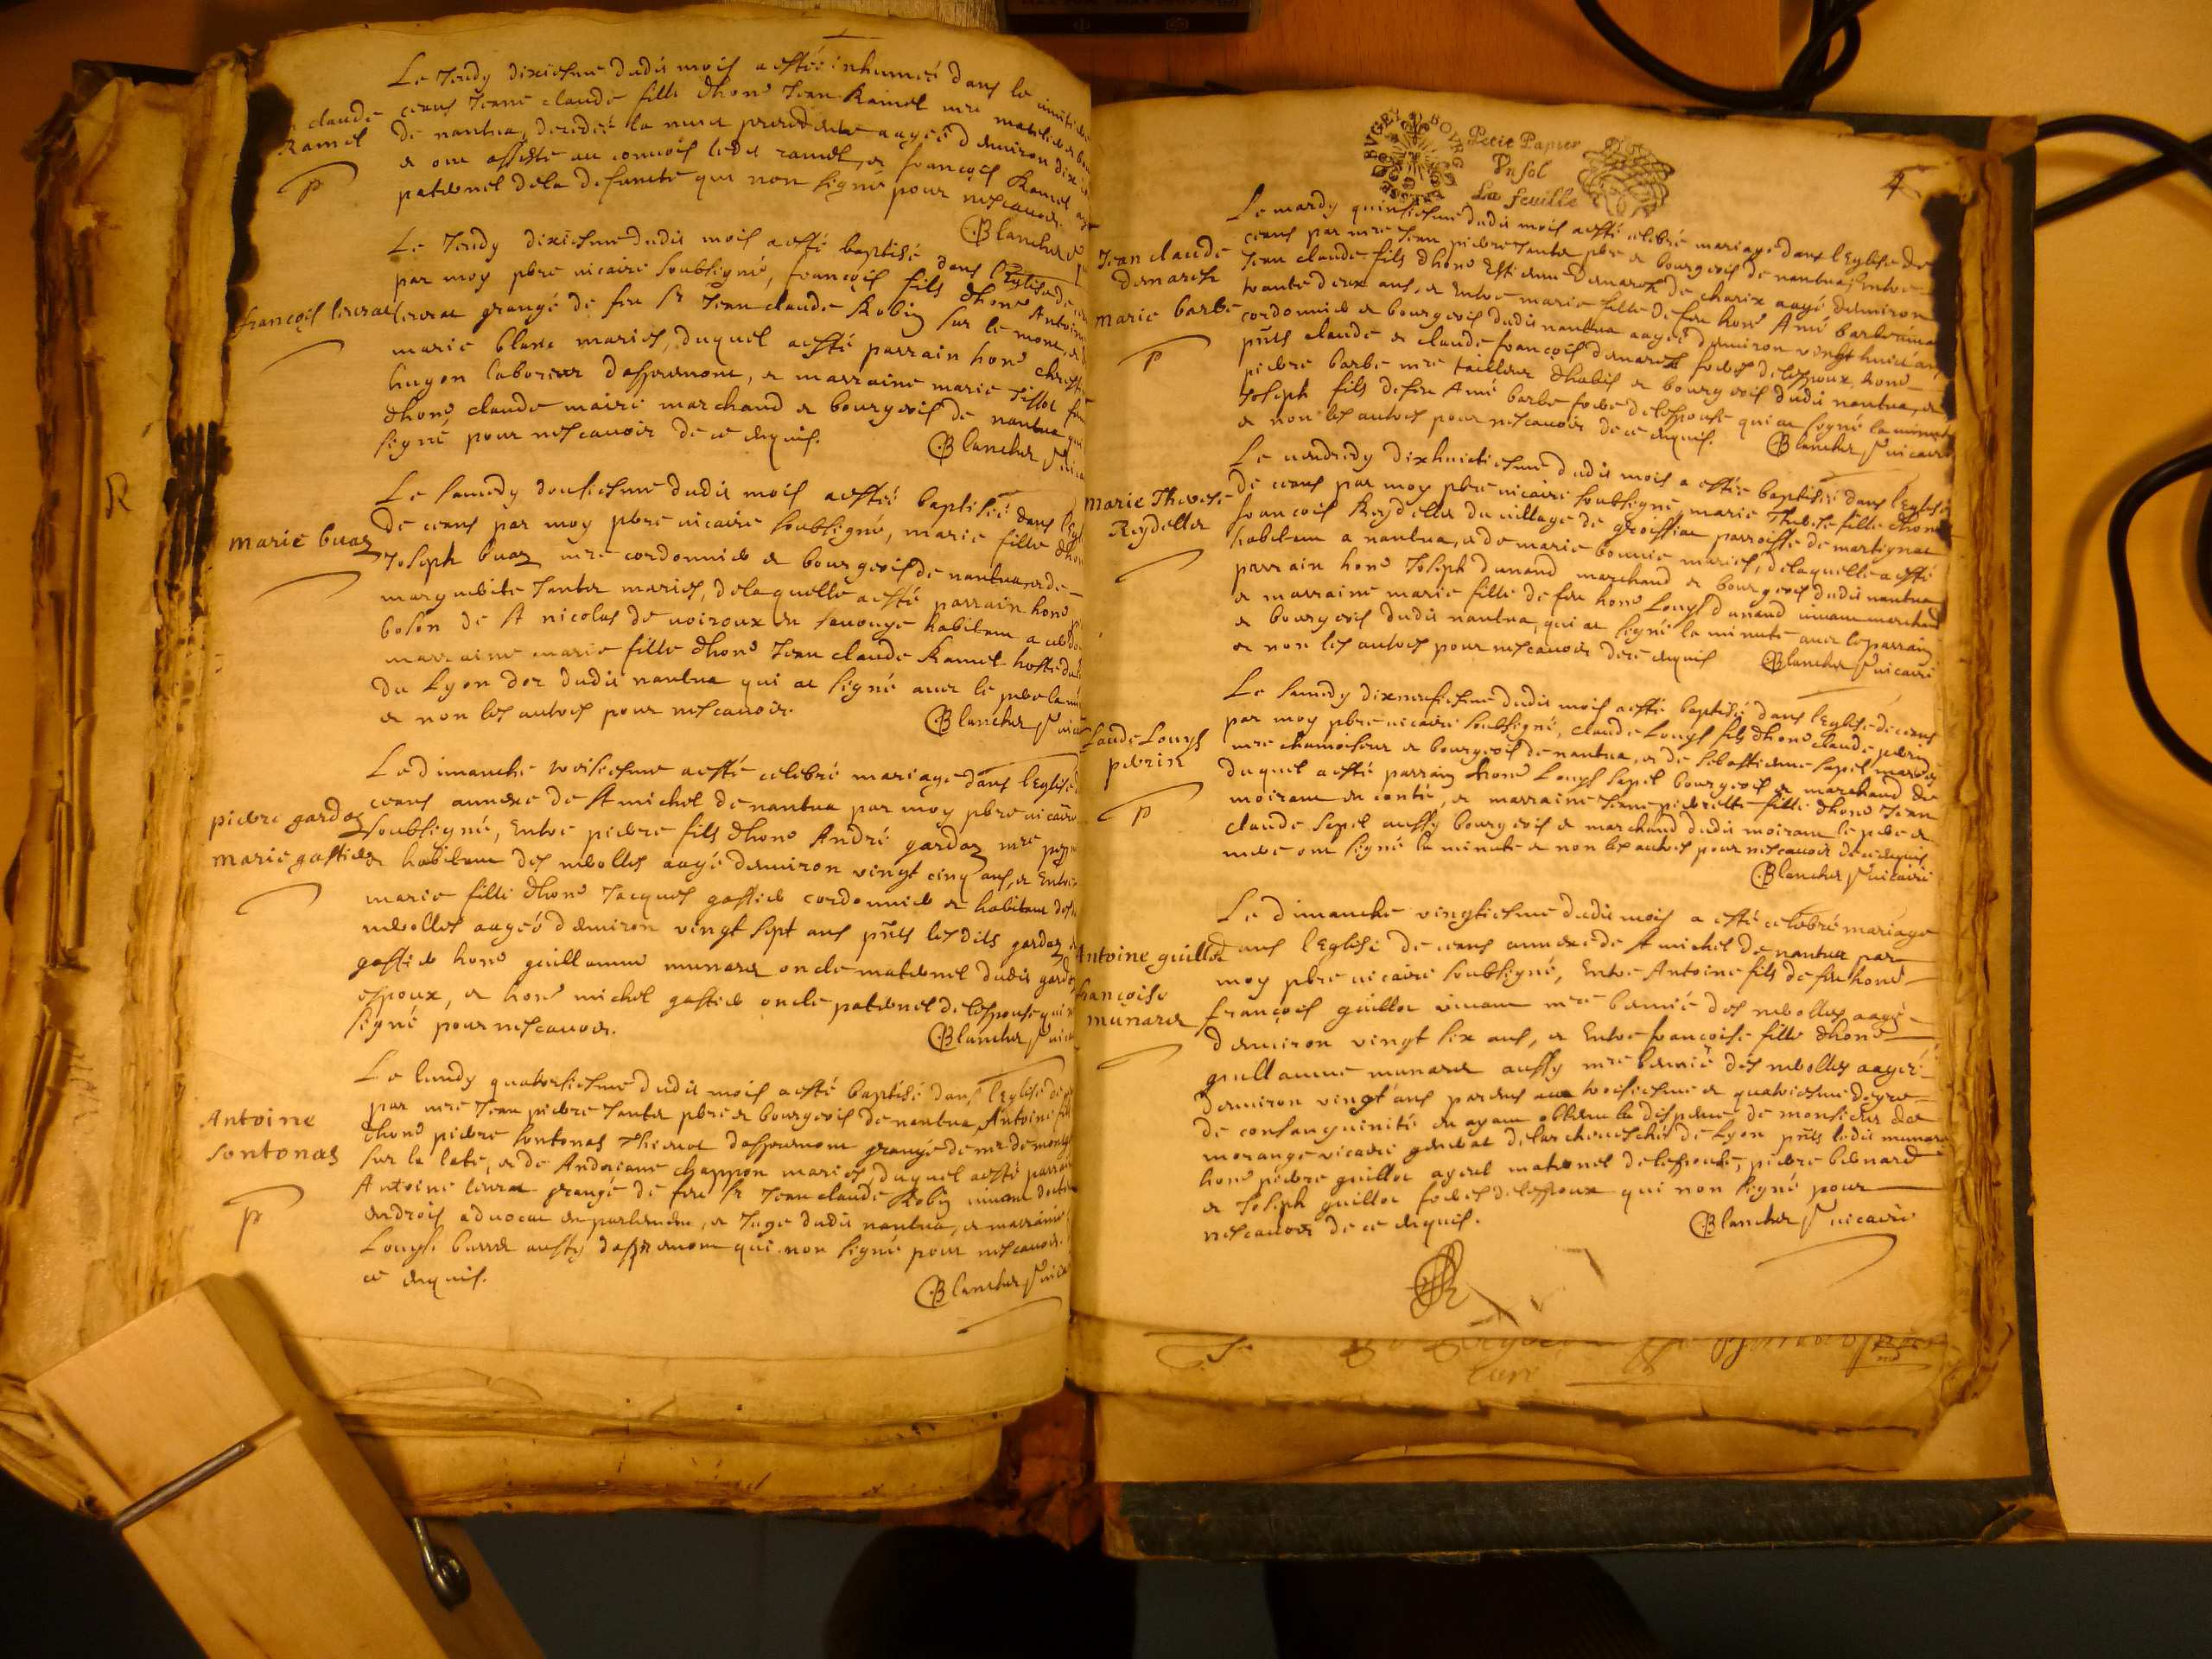 Le Jeudy dixiesme dudit mois a esté inhumeé dans le
claude
Ramel
ceans Jeane claude fille d'hone Jean Ramel mre
de nantua, decedeé la nuict precedente aageé d'environ dix
et ont assisté au convois ledit ramel, et françois Ramel
paternel de la defuncte qui non signé pour nescavoir.
Blanchet
Le Jeudy dixiesme dudit mois a esté baptisé dans l'Eglise de
par moy pbre vicaire soubsigné, françois fils d'hone Antoine
françois levrat
levrat grangé de feu Sr Jean claude Robin sur le mont, et
marie blanc mariés, duquel a esté parrain hone
hugon laboureur d'apremont, et marraine marie Tissot
d'hone claude maire marchand et bourgeois de nantua qui
signé pour nescavoir de ce requis.
Blanchet
Le samedy dousiesme dudit mois a esté baptiseé dans
marie buaz
de ceans par moy pbre vicaire soubsigné, marie fille
Joseph buaz mre cordonnier et bourgeois de nantua, et de
marguerite Jantet mariés, de laquelle a esté parrain hone
boson de St nicolas de voiroux en savoye habitant a
marraine marie fille d'hone Jean claude Ramel hoste du
du Lyon dor dudit nantua qui at signé avec le pere
et non les autres pour nescavoir.
Blanchet
Le dimanche treisiesme a esté celebré mariage dans l'Eglise
ceans annexe de St michel de nantua par moy pbre vicaire
pierre gardaz
marie gastier
soubsigné, Entre pierre fils d'hone André gardaz mre
et habitant des nerolles aagé d'environ vingt cinq ans, et Entre
marie fille d'hone Jacques gastier cordonnier et habitant des
nerolles aageé d'environ vingt sept ans pnts lesdits gardaz et
gastier hone guillaume munaret oncle maternel dudit
espoux, et hone michel gastier oncle paternel de l'espouse qui
signé pour nescavoir.
Blanchet
Le lundy quatorsiesme dudit mois a esté baptisé dans l'Eglise de
Antoine
sontonas
par mre Jean pierre Jantet pbre et bourgeois de nantua Antoine fils
d'hone pierre sontonas d'apremont grangé de mr de
sur le late, et de Andreane chappon mariés, duquel a esté parrain
Antoine levrat grangé de feu Sr Jean claude Robin vivant
endroit advocat en parlement, et Juge dudit nantua, et marraine
Louyse aussy d'apremont qui non signé pour nescavoir.
ce requis.
Blanchet
Petit Papier
Vn sol
La feuille
Le mardy quinsiesme dudit mois a esté celebré mariage dans l'Eglise de
Jean claude
demarest
marie barbe
ceans par mre Jean pierre Jantet pbre et bourgeois de nantua, Entre
Jean claude fils d'hone Estienne demarest de charix aagé d'environ
trante deux ans, et Entre marie fille de feu hone Amé barbe
cordonnier et bourgeois dudit nantua aageé d'environ vingt huict ans
pnts claude et claude françois demarest freres de l'espoux, hone
pierre barbe mre tailleur d'habis et bourgeois dudit nantua, et
Joseph fils de feu Amé barbe frere de l'espouse qui at signé la minute
et non les autres pour nescavoir de ce requis.
Blanchet vicaire
Le vendredy dixhuictiesme dudit mois a esté baptiseé dans l'Eglise
marie Therese
Reydellet
de ceans par moy pbre vicaire soubsigné, marie Therese fille d'hone
françois Reydellet du village de groissiat parroisse de martignat
habitant a nantua, et de marie mariés, de laquelle a esté
parrain hone Joseph dunand marchand et bourgeois dudit nantua
et marraine marie fille de feu hone Louys dunand vivant marchand
et bourgeois dudit nantua, qui at signé la minute avec le parrain
et non les autres pour nescavoir de ce requis
Blanchet vicaire
Le samedy dixneufiesme dudit mois a esté baptisé dans l'Eglise de ceans
claude Louys
perrin
par moy pbre vicaire soubsigné, claude Louys fils d'hone claude perrin
mre chamoiseur et bourgeois de nantua, et de sebastienne sapel mariés
duquel a esté parrain hone Louys sapel bourgeois et marchand de
moirant en conté, et marraine Jeane pierrette fille d'hone Jean
claude sapel aussy bourgeois et marchand dudit moirant le pere et
mere ont signé la minute et non les autres pour nescavoir de ce requis
Blanchet vicaire
Le dimanche vingtiesme dudit mois a esté celebré mariage
Antoine guillot
françoise
munaret
dans l'Eglise de ceans annexe de St michel de nantua par
moy pbre vicaire soubsigné, Entre Antoine fils de feu hone
françois guillot vivant mre des nerolles aagé
d'environ vingt six ans, et Entre françoise fille d'hone
guillaume munaret aussy mre des nerolles aageé
d'environ vingt ans parens au troisiesme et quatriesme degre
de consanguinité en ayant obtenu la dispense de monsieur de
morange vicaire general de l'archevesché de Lyon pnts ledit munaret
hone pierre guillot ayeul maternel de l'espouse, pierre bernard
et Joseph guillot freres de l'espoux qui non signé pour
nescavoir de ce requis.
Blanchet vicaire